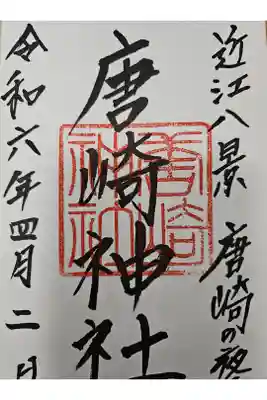 近江八景 唐崎の夜
唐崎神社
令和六年四月二日